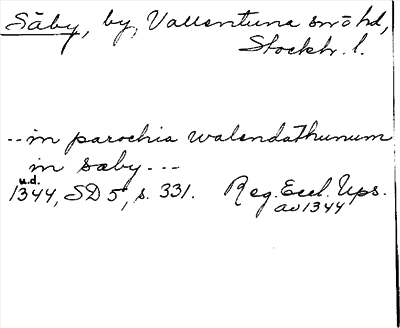 Säby, by, Vallentuna sn o hd,
Stockh. l.
-- in parochia walendathunum
in sæby ---
u.d.
1344, SD 5, s. 331. Reg. Eccl. Ups.
av 1344